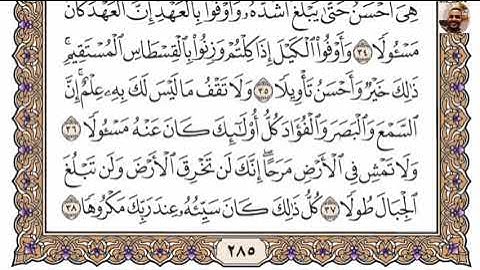 هِىَ أَحْسَنُ حَتَّىٰ يَبْلُغَ أَشُدَّهُۥ وَأَوْفُوا۟ بِٱلْعَهْدِ إِنَّ ٱلْعَهْدَ كَانَ
مَسْـُٔولًا ٣٤ وَأَوْفُوا۟ ٱلْكَيْلَ إِذَا كِلْتُمْ وَزِنُوا۟ بِٱلْقِسْطَاسِ ٱلْمُسْتَقِيمِ ۚ
ذَٰلِكَ خَيْرٌ وَأَحْسَنُ تَأْوِيلًا ٣٥ وَلَا تَقْفُ مَا لَيْسَ لَكَ بِهِۦ عِلْمٌ ۚ إِنَّ
ٱلسَّمْعَ وَٱلْبَصَرَ وَٱلْفُؤَادَ كُلُّ أُو۟لَٰٓئِكَ كَانَ عَنْهُ مَسْـُٔولًا ٣٦
وَلَا تَمْشِ فِى ٱلْأَرْضِ مَرَحًا ۖ إِنَّكَ لَن تَخْرِقَ ٱلْأَرْضَ وَلَن تَبْلُغَ
ٱلْجِبَالَ طُولًا ٣٧ كُلُّ ذَٰلِكَ كَانَ سَيِّئُهُۥ عِندَ رَبِّكَ مَكْرُوهًا ٣٨
٢٨٥